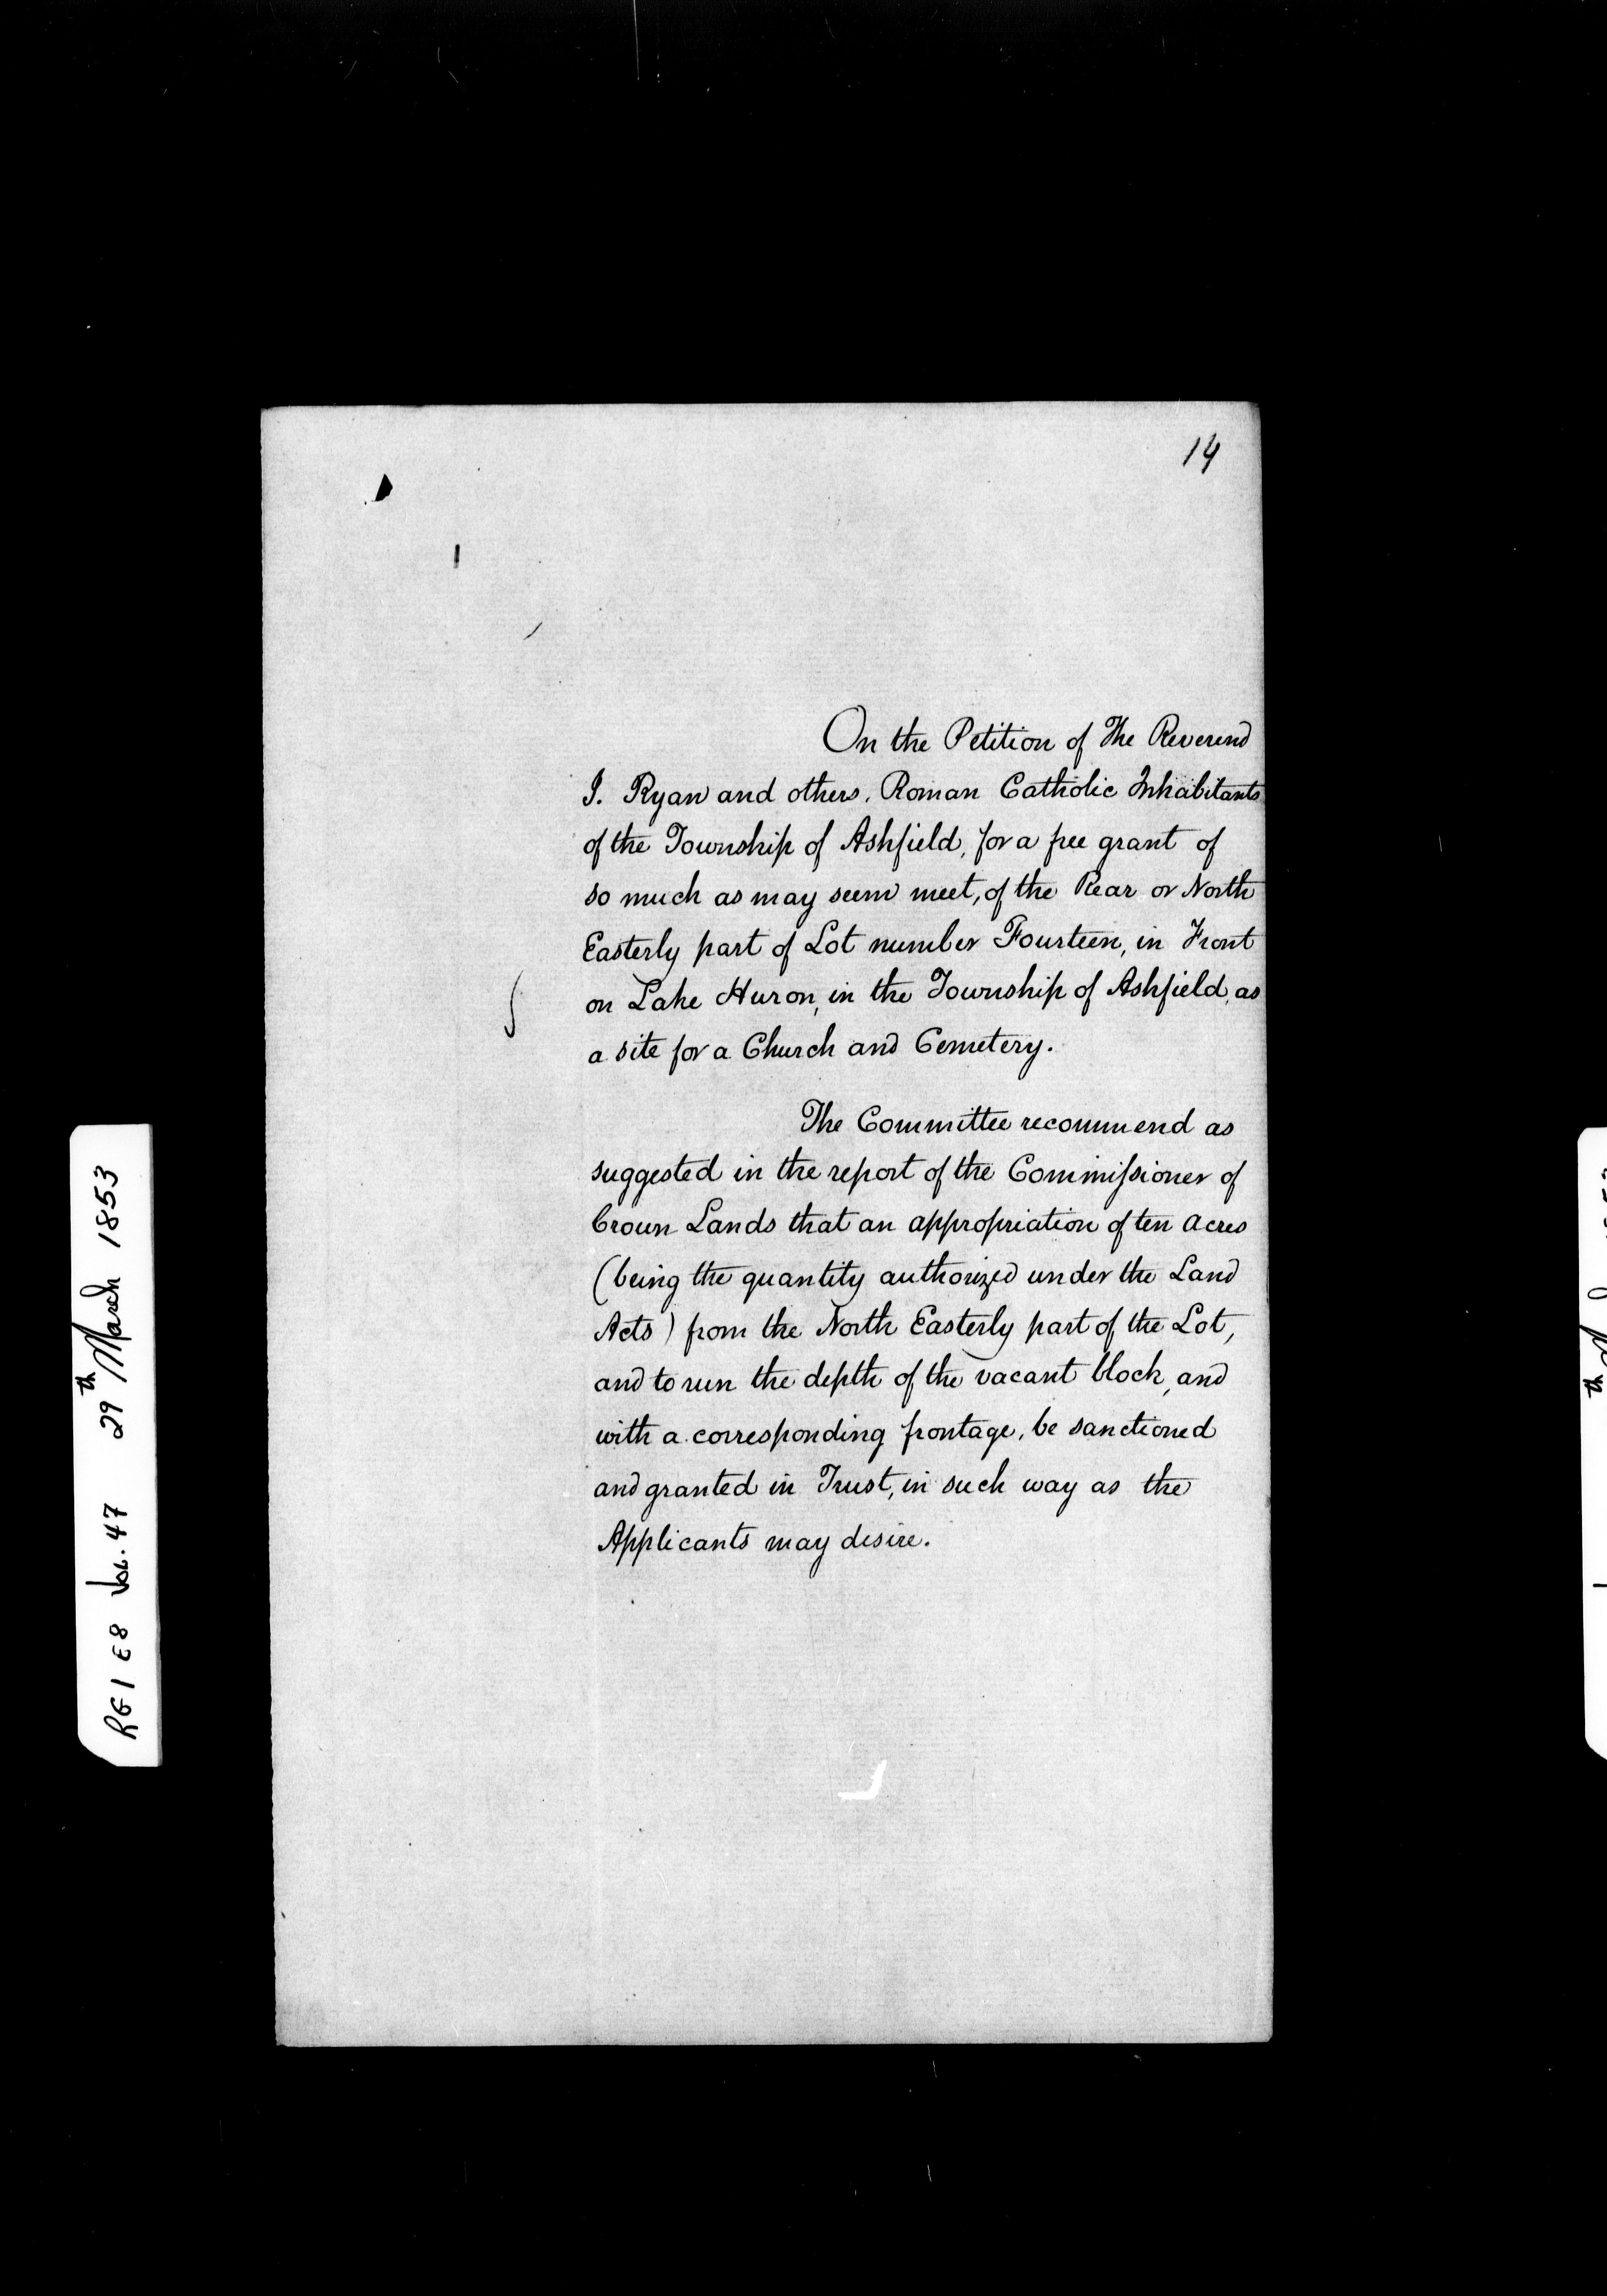 14
On the Petition of The Reverend
J. Ryan and others, Roman Catholic Inhabitants
of the Township of Ashfield, for a free grant of
so much as may seem meet, of the Rear or North
Easterly part of Lot number Fourteen, in Front
on Lake Huron, in the Township of Ashfield, as
a site for a Church and Cemetery.
The Committee recommend as
suggested in the report of the Commissioner of
Crown Lands that an appropriation of ten acres
(being the quantity authorized under the Land
Acts) from the North Easterly part of the Lot,
and to run the depth of the vacant block, and
with a corresponding frontage, be sanctioned
and granted in Trust, in such way as the
Applicants may desire.
RG1 E8 Vol. 47 29th March 1853